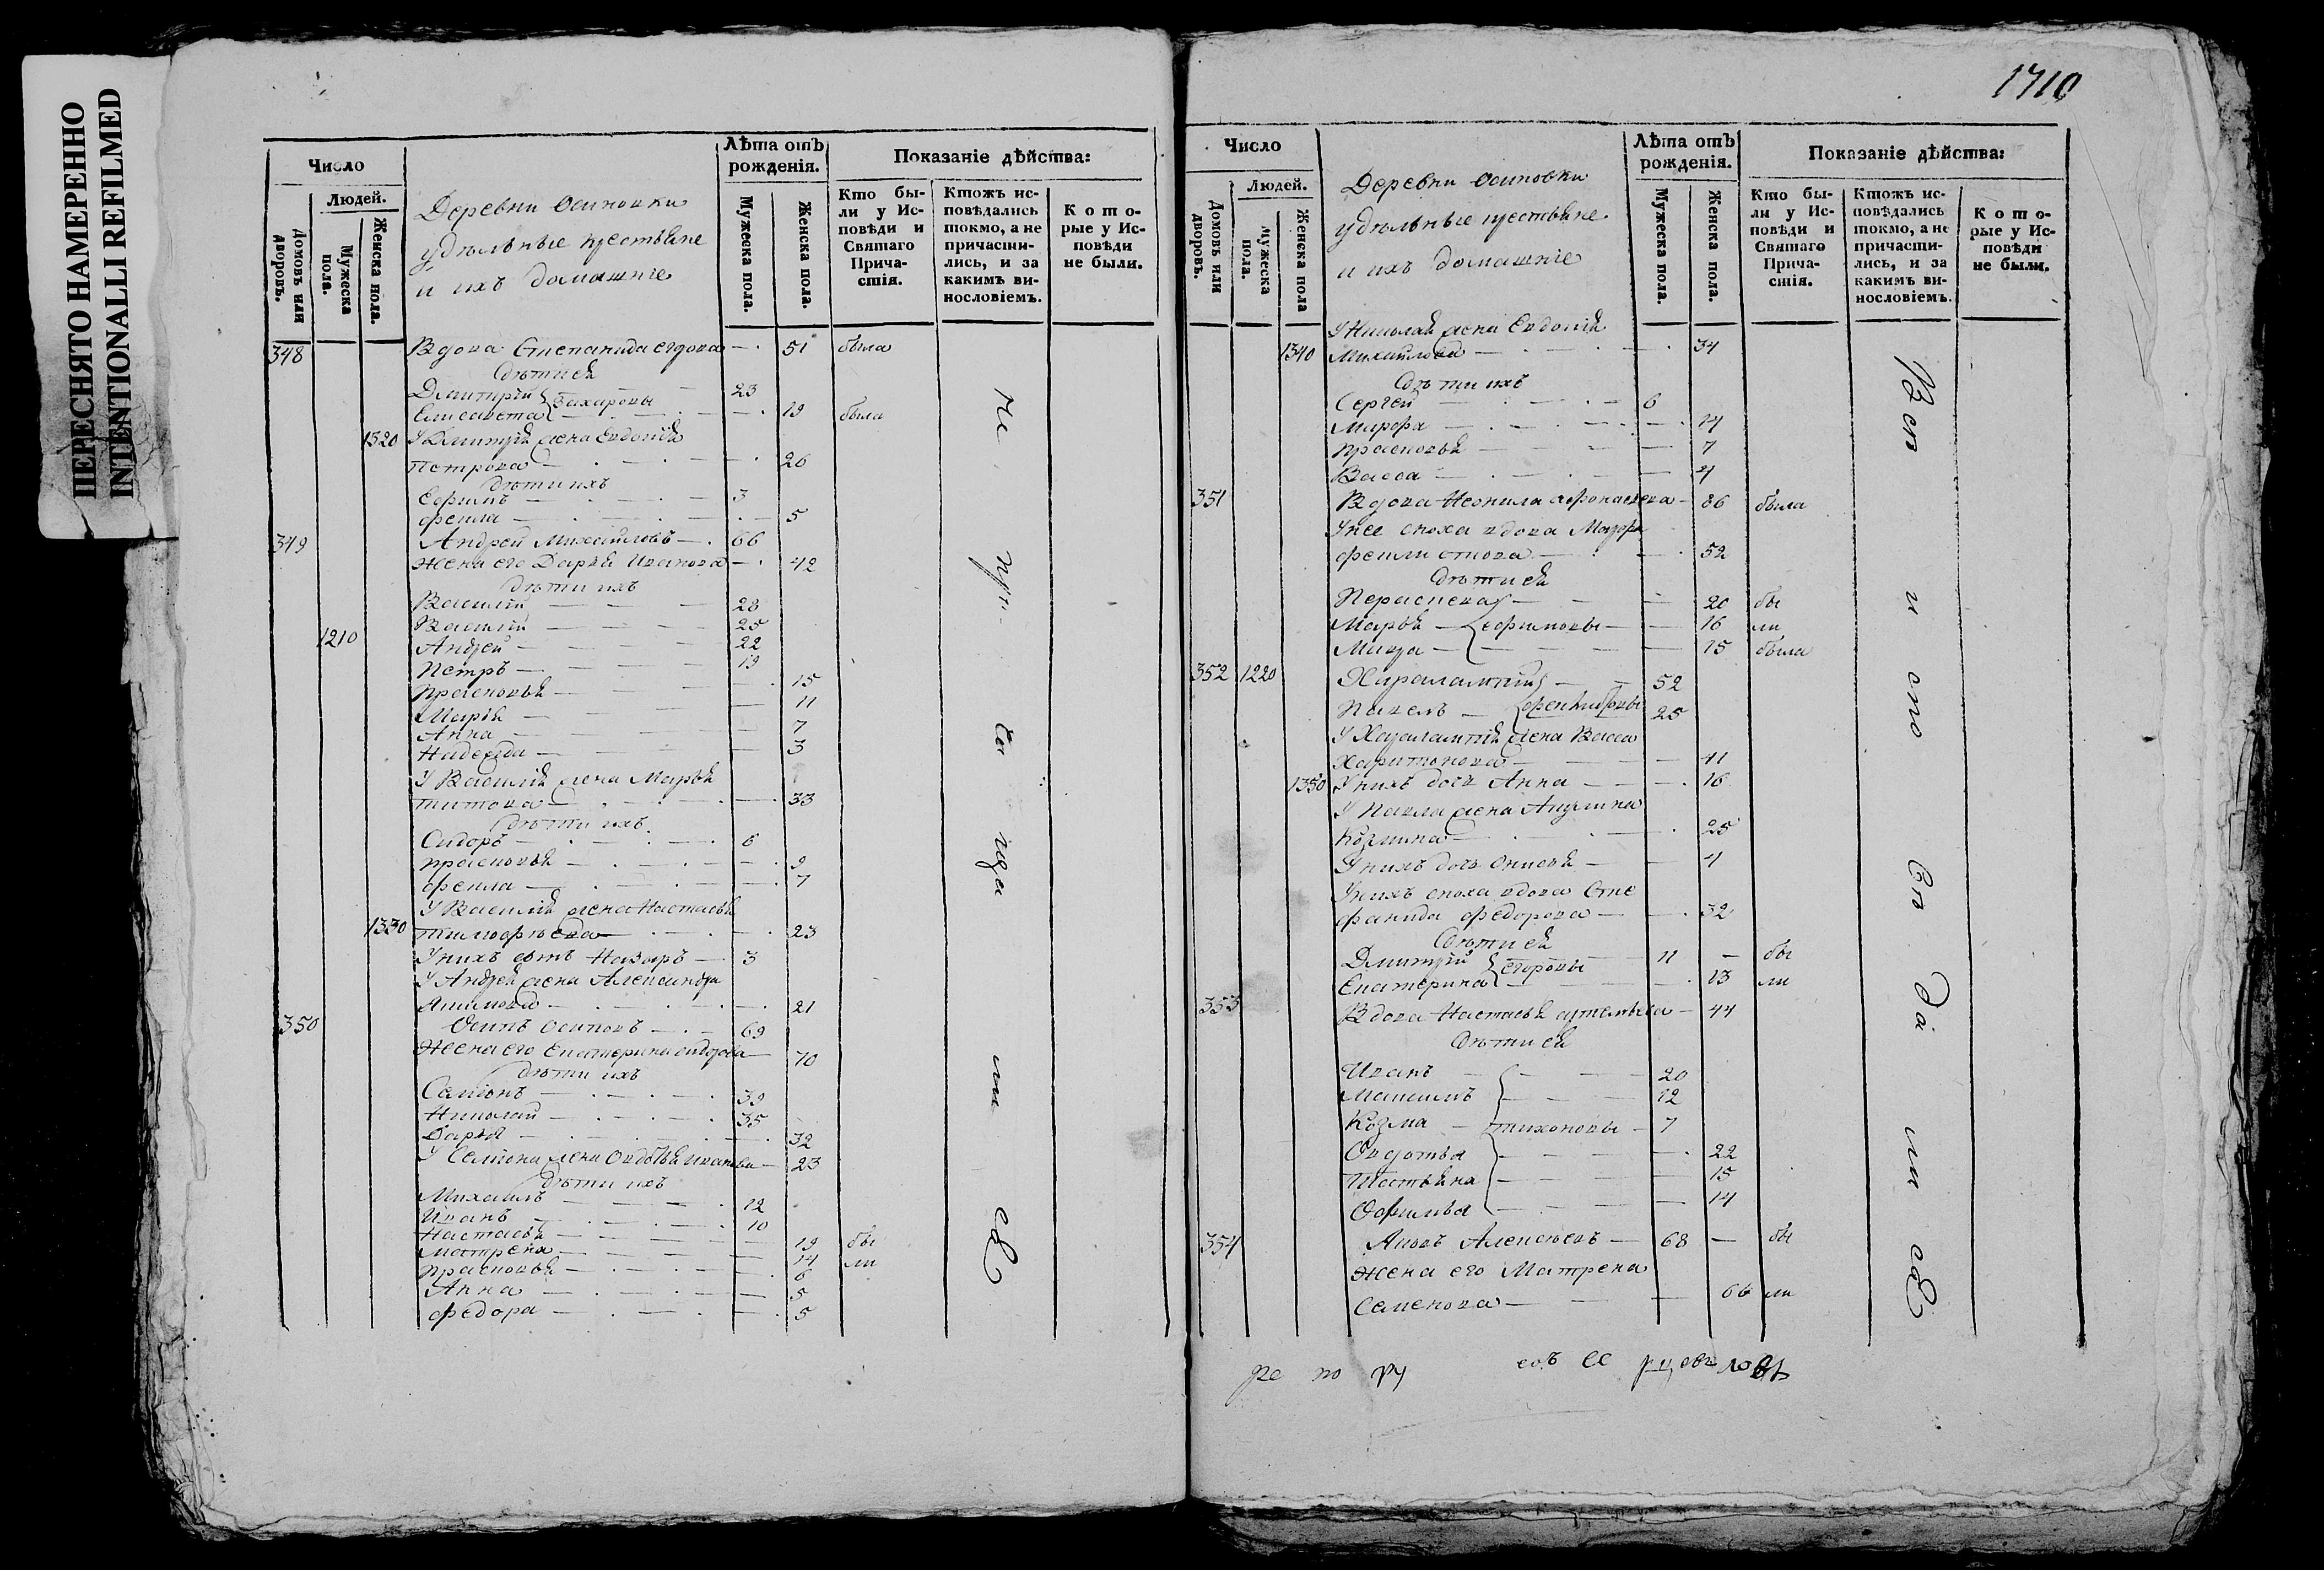 ПЕРЕСНЯТО НАМЕРЕННО
INTENTIONALLI REFILMED
Число
Людей.
Домовъ или дворовъ.
Мужеска пола.
Женска пола.
Деревни Осиновки
удѣльные крестьяне
и ихъ домашніе
Лѣта отъ рожденія.
Мужеска пола.
Женска пола.
Показаніе дѣйства:
Кто были у Исповѣди и Святаго Причастія.
Ктожъ исповѣдались токмо, а не причастились, и за какимъ винословіемъ.
Которые у Исповѣди не были.
348 Вдова Степанида 51 была
Дѣти ея
Дмитрій 23
Елисавета Захаровы 19 была
1320 У Дмитрія жена Евдокія
Петрова 26
Дѣти ихъ
Ефимъ 3
Фекла 5
349 Андрей Михайловъ 66
Жена его Дарья Иванова 42
Дѣти ихъ
Василій 28
Василій 25
1210 Андрей 22
Петръ 19
Прасковья 15
Марія 11
Анна 7
Надежда 3
У Василія жена Марья
Титова 33
Дѣти ихъ
Сидоръ 6
Прасковья 9
Фекла 7
У Василія жена Настасья
1330 Тимофѣева 23
У нихъ сынъ Назаръ 3
У Андрея жена Александра
Акимова 21
350 Осипъ Осиповъ 69
Жена его Екатерина 70
Дѣти ихъ
Семіонъ 39
Николай 35
Дарья 32
У Семіона жена Овдотья Иванова 23
Дѣти ихъ
Михаилъ 12
Иванъ 10
Настасья 19 бы
Матрена 14 ли
Прасковья 6
Анна 5
Федора 5
1710
Число
Людей.
Домовъ или дворовъ.
Мужеска пола.
Женска пола
Деревни Осиновки
удѣльные крестьяне
и ихъ домашніе
Лѣта отъ рожденія.
Мужеска пола.
Женска пола.
Показаніе дѣйства:
Кто были у Исповѣди и Святаго Причастія.
Ктожъ исповѣдались токмо, а не причастились, и за какимъ винословіемъ.
Которые у Исповѣди не были.
У Николая жена Евдокія
1340 Михайлова 34
Дѣти ихъ
Сергей 6
Марфа 14
Прасковья 7
Васса 4
351 Вдова Неонила Афонасьева 86 была
У нее сноха вдова Марфа
52
Дѣти ея
Параскева 20 бы
Марья Ефимовы 16 ли
15 была
352 1220 Харалампій 52
Павелъ 25
У Харалампія жена Васса
Харитонова 41
1350 У нихъ дочь Анна 16
У Павла жена Акулина
Козмина 25
У нихъ дочь 4
У нихъ сноха вдова Сте
фанида Федорова 32
Дѣти ея
Дмитрій 11 бы
Екатерина Егоровы 13 ли
353 Вдова Настасья 44
Дѣти ея
Иванъ 20
Максимъ 12
Козма Тихоновы 7
Овдотья 22
Татьяна 15
Офимья 14
354 Аковъ Алексѣевъ 68 бы
Жена его Матрена
Семенова 66 ли